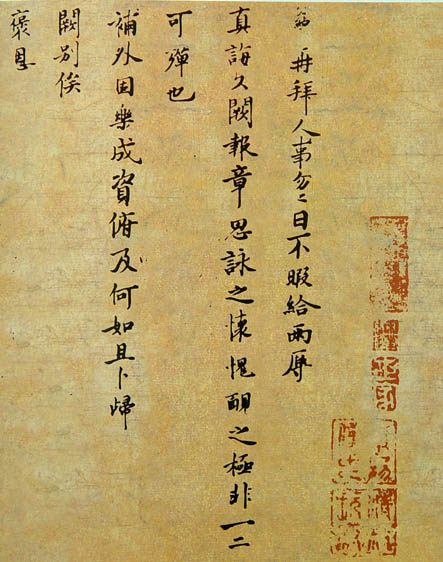 再拜人事匆匆日不暇給兩辱
真誨久闕報章思詠之懷愧靦之極非一二
可殫也
補外因樂成資俯及何如且卜歸
闕別俟
褒恩